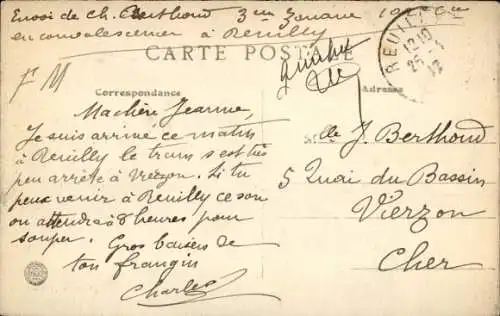 Envoi de Ch. Berthoud 3me Zouave
en convalescence à Reuilly
CARTE POSTALE
Correspondance
Adresse
REUILLY
12 10
25 -
12
Ma chère Jeanne,
Je suis arrivé ce matin
à Reuilly le train s'est très
peu arrêté à Vierzon. Si tu
peux venir à Reuilly ce soir
on attendra à 8 heures pour
souper. Gros baisers de
ton frangin
Charles
Mlle J. Berthoud
5 Quai du Bassin
Vierzon
Cher